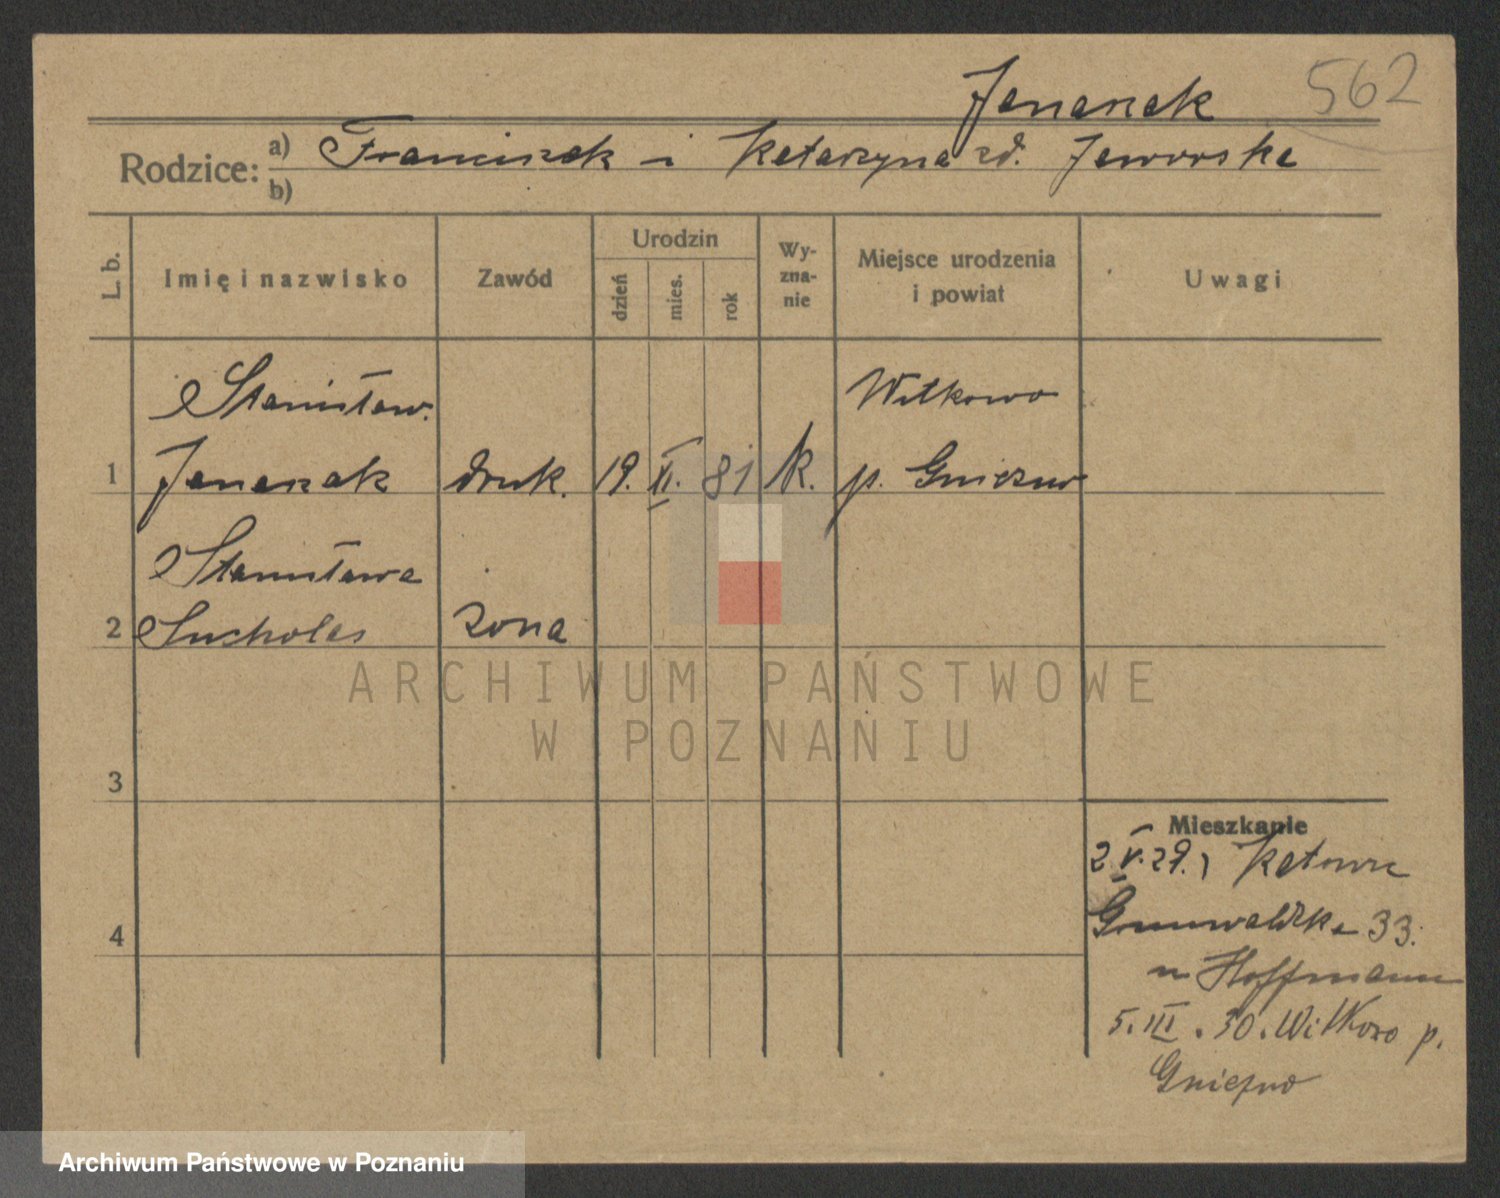 562
Janaszak
Rodzice: a) Franciszek i Katarzyna zd. Jaworska
b)
L. b. Imię i nazwisko Zawód Urodzin dzień mies. rok Wy-zna-nie Miejsce urodzenia i powiat Uwagi
Stanisław Witkowo
1 Janaszak druk. 19. XI. 81 k. p. Gniezno
Stanisława
2 Sucholas żona
ARCHIWUM PAŃSTWOWE
W POZNANIU
3
Mieszkanie
2.V.29. Katowic
4 Grunwaldzka 33.
u Hoffmann
5.III.30. Witkowo p.
Gniezno
Archiwum Państwowe w Poznaniu